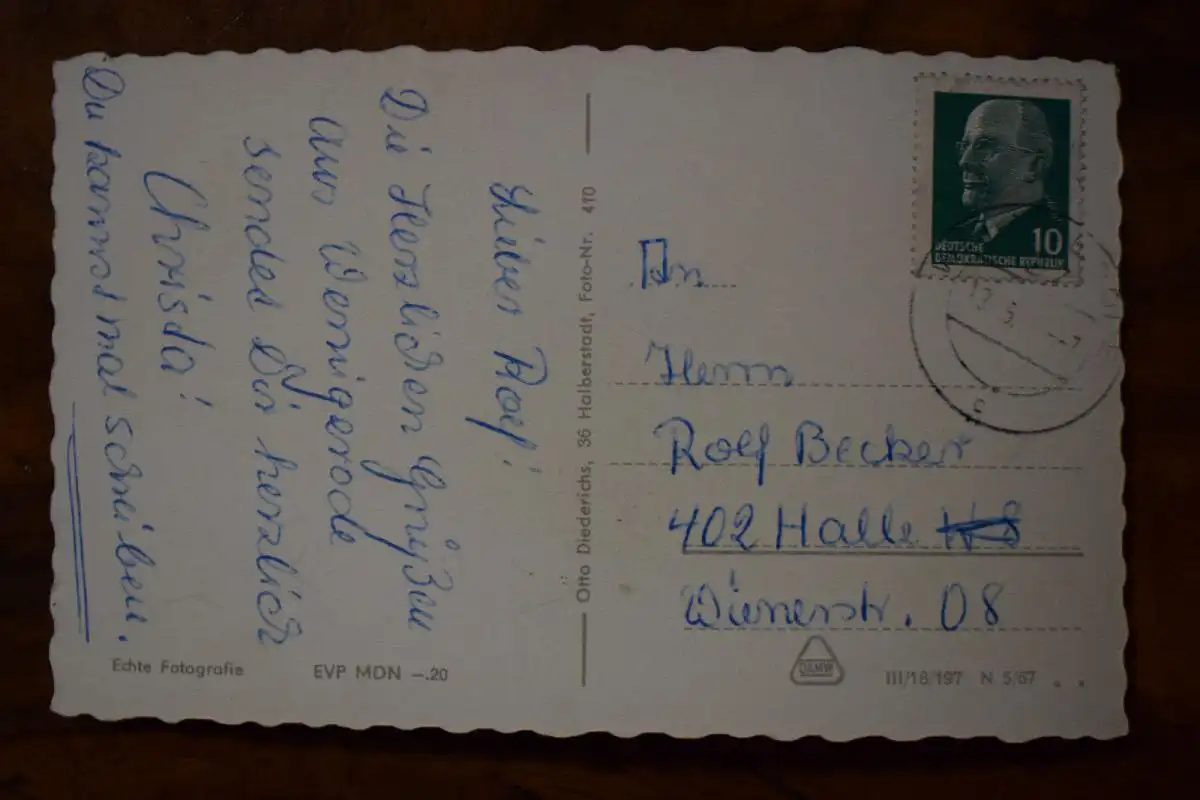 Lieber Rolf!
Die Herzlichen Grüßen
aus Wernigerode
sendet Dir herzlich
Christa!
Du kannst mal schreiben.
Echte Fotografie
EVP MDN –.20
Otto Diederichs, 36 Halberstadt, Foto-Nr. 410
DEUTSCHE
DEMOKRATISCHE REPUBLIK
10
An
Herrn
Rolf Becker
402 Halle
Wienerstr. 08
DAMW
III/18/197 N 5/67